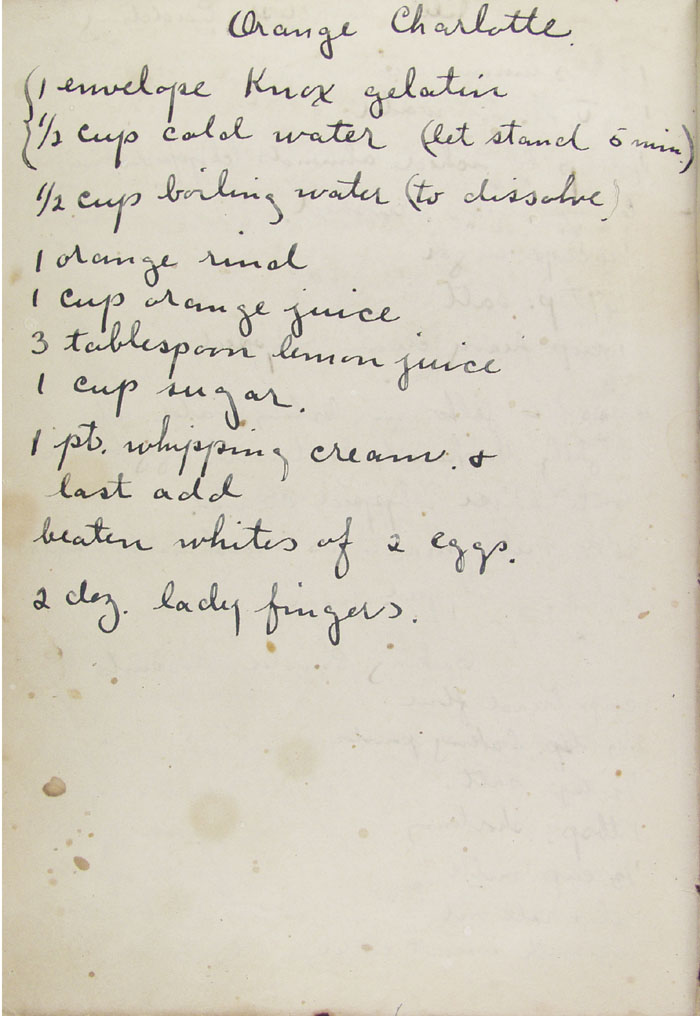 Orange Charlotte.
1 envelope Knox gelatin
1/2 cup cold water (let stand 5 min.)
1/2 cup boiling water (to dissolve)
1 orange rind
1 cup orange juice
3 tablespoon lemon juice
1 cup sugar.
1 pt. whipping cream. &
last add
beaten whites of 2 eggs.
2 doz. lady fingers.